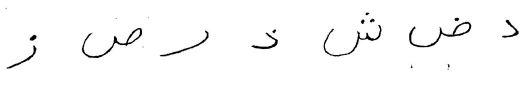 د ض ش ذ ر ص ز